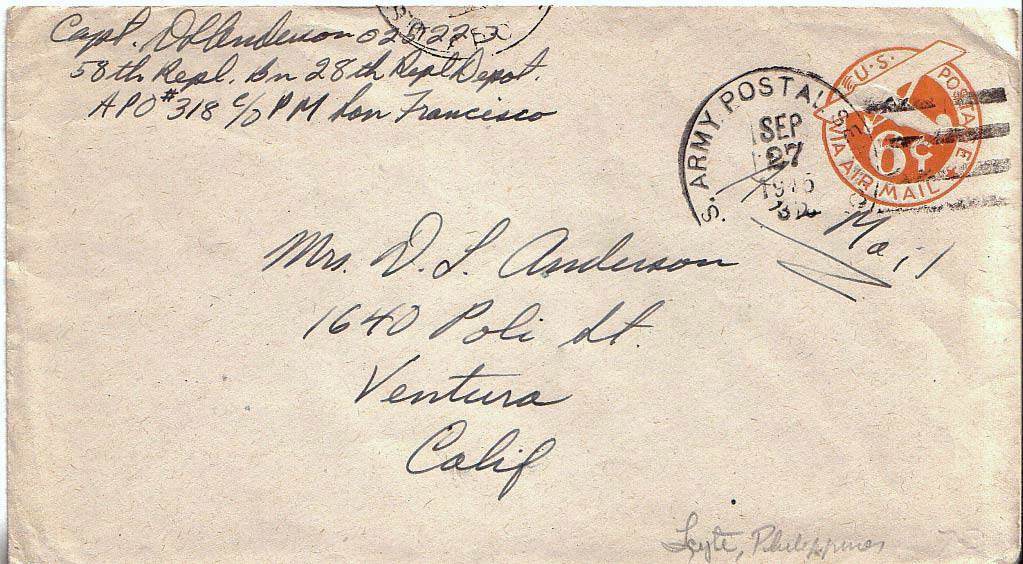 Capt. D L Anderson
58th Repl. Bn 28th Repl Depot.
APO #318 c/o PM San Francisco
S. ARMY POSTAL SE
SEP
27
U.S. POSTAGE
6¢
VIA AIR MAIL
Mail
Mrs. D. L. Anderson
1640 Poli St.
Ventura
Calif
Leyte, Philippines